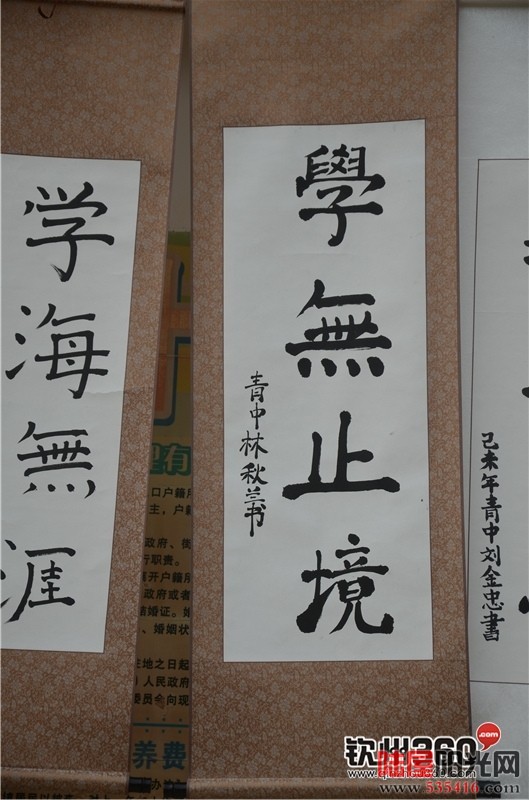 学海無涯
學無止境
青中林秋兰书
己未年青中刘金忠書
口户籍所
主，户籍
政府、街
行职责。
离开户籍所
政府或者
结婚证。
、婚姻状
在地之日起
人民政府
委员会向现
养费
钦州360
.com
www.535416.com